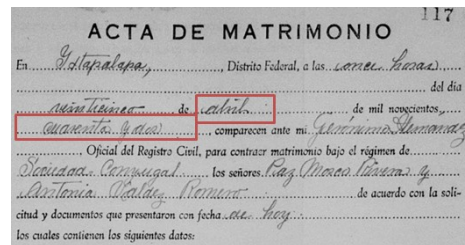 117
ACTA DE MATRIMONIO
En Ixtapalapa, , Distrito Federal, a las once horas
del día
veinticinco de abril de mil novecientos,
cuarenta y dos , comparecen ante mi Gerónimo Hernandez
Oficial del Registro Civil, para contraer matrimonio bajo el régimen de
Sociedad Conyugal los señores Paz Moses Riveras y
Antonia Valdez Romero de acuerdo con la soli-
citud y documentos que presentaron con fecha de hoy
los cuales contienen los siguientes datos: